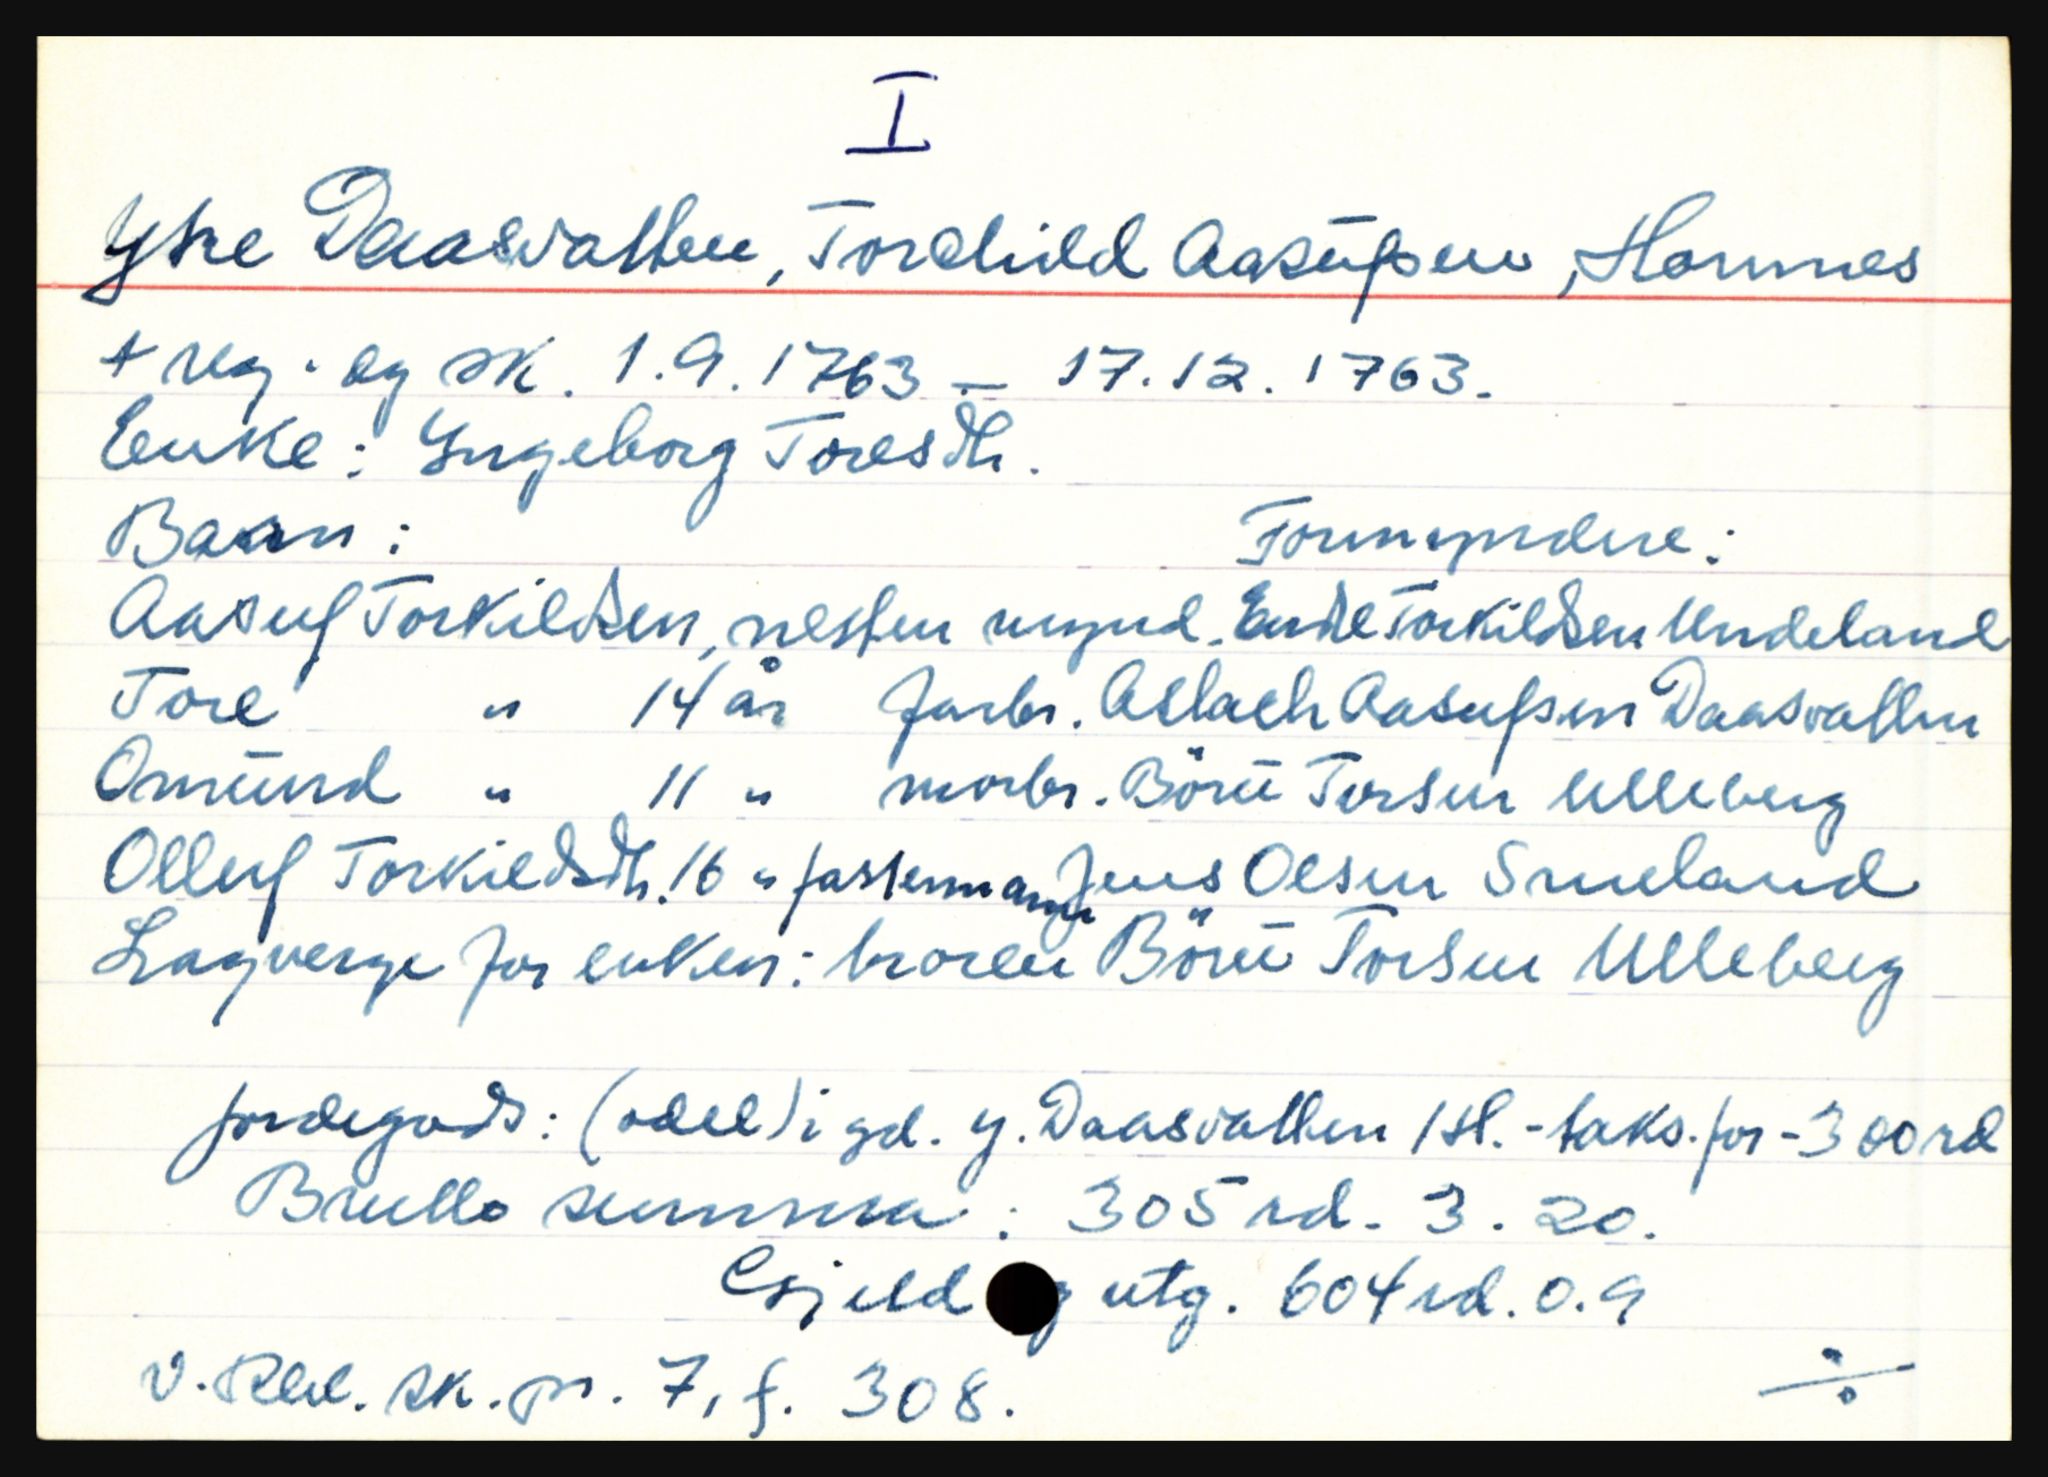 I
Ytre Daasvatten, Torchild Aasufsen, Hornnes
+ reg. og sk. 1.9.1763 – 17.12.1763.
Enke: Yngeborg Toresdtr.
Barn: Formyndere:
Aasuf Torkildsen, nesten mynd. Endre Torkildsen Undeland
Tore " 14 år farbr. Aslach Aasufsen Daasvatten
Omund " 11 " morbr. Böru Torsen Ulleberg
Olluf Torkildsdtr. 16 " fastermann Jens Olsen Smeland
Lagverge for enken: broren Böru Torsen Ulleberg
jordegods: (odel) i gd. y. Daasvatten 1 hl. - taks. for - 300 rd
Brutto summa: 305 rd. 3. 20.
Gjeld og utg. 604 rd. 0.9
v. Rbl. sk. pr. 7, f. 308.
÷